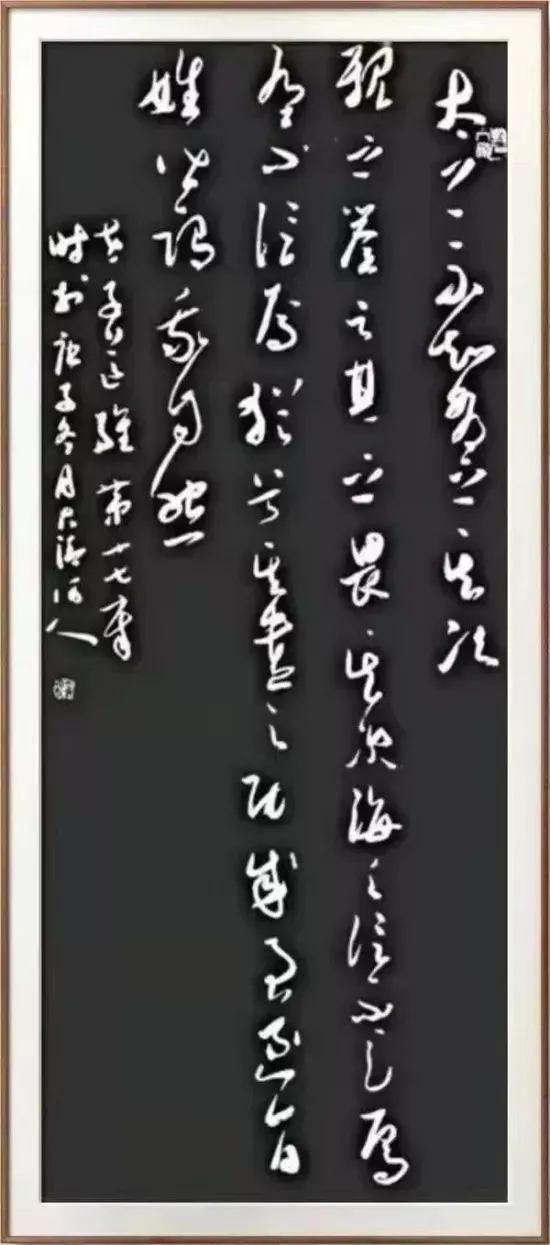 太上不知有之其次
親之譽之其之畏其次侮之信不足焉
有不信焉猶兮其貴言功成事遂百
姓皆謂我自然
老子道經第十七章
时於庚子冬月大清河人